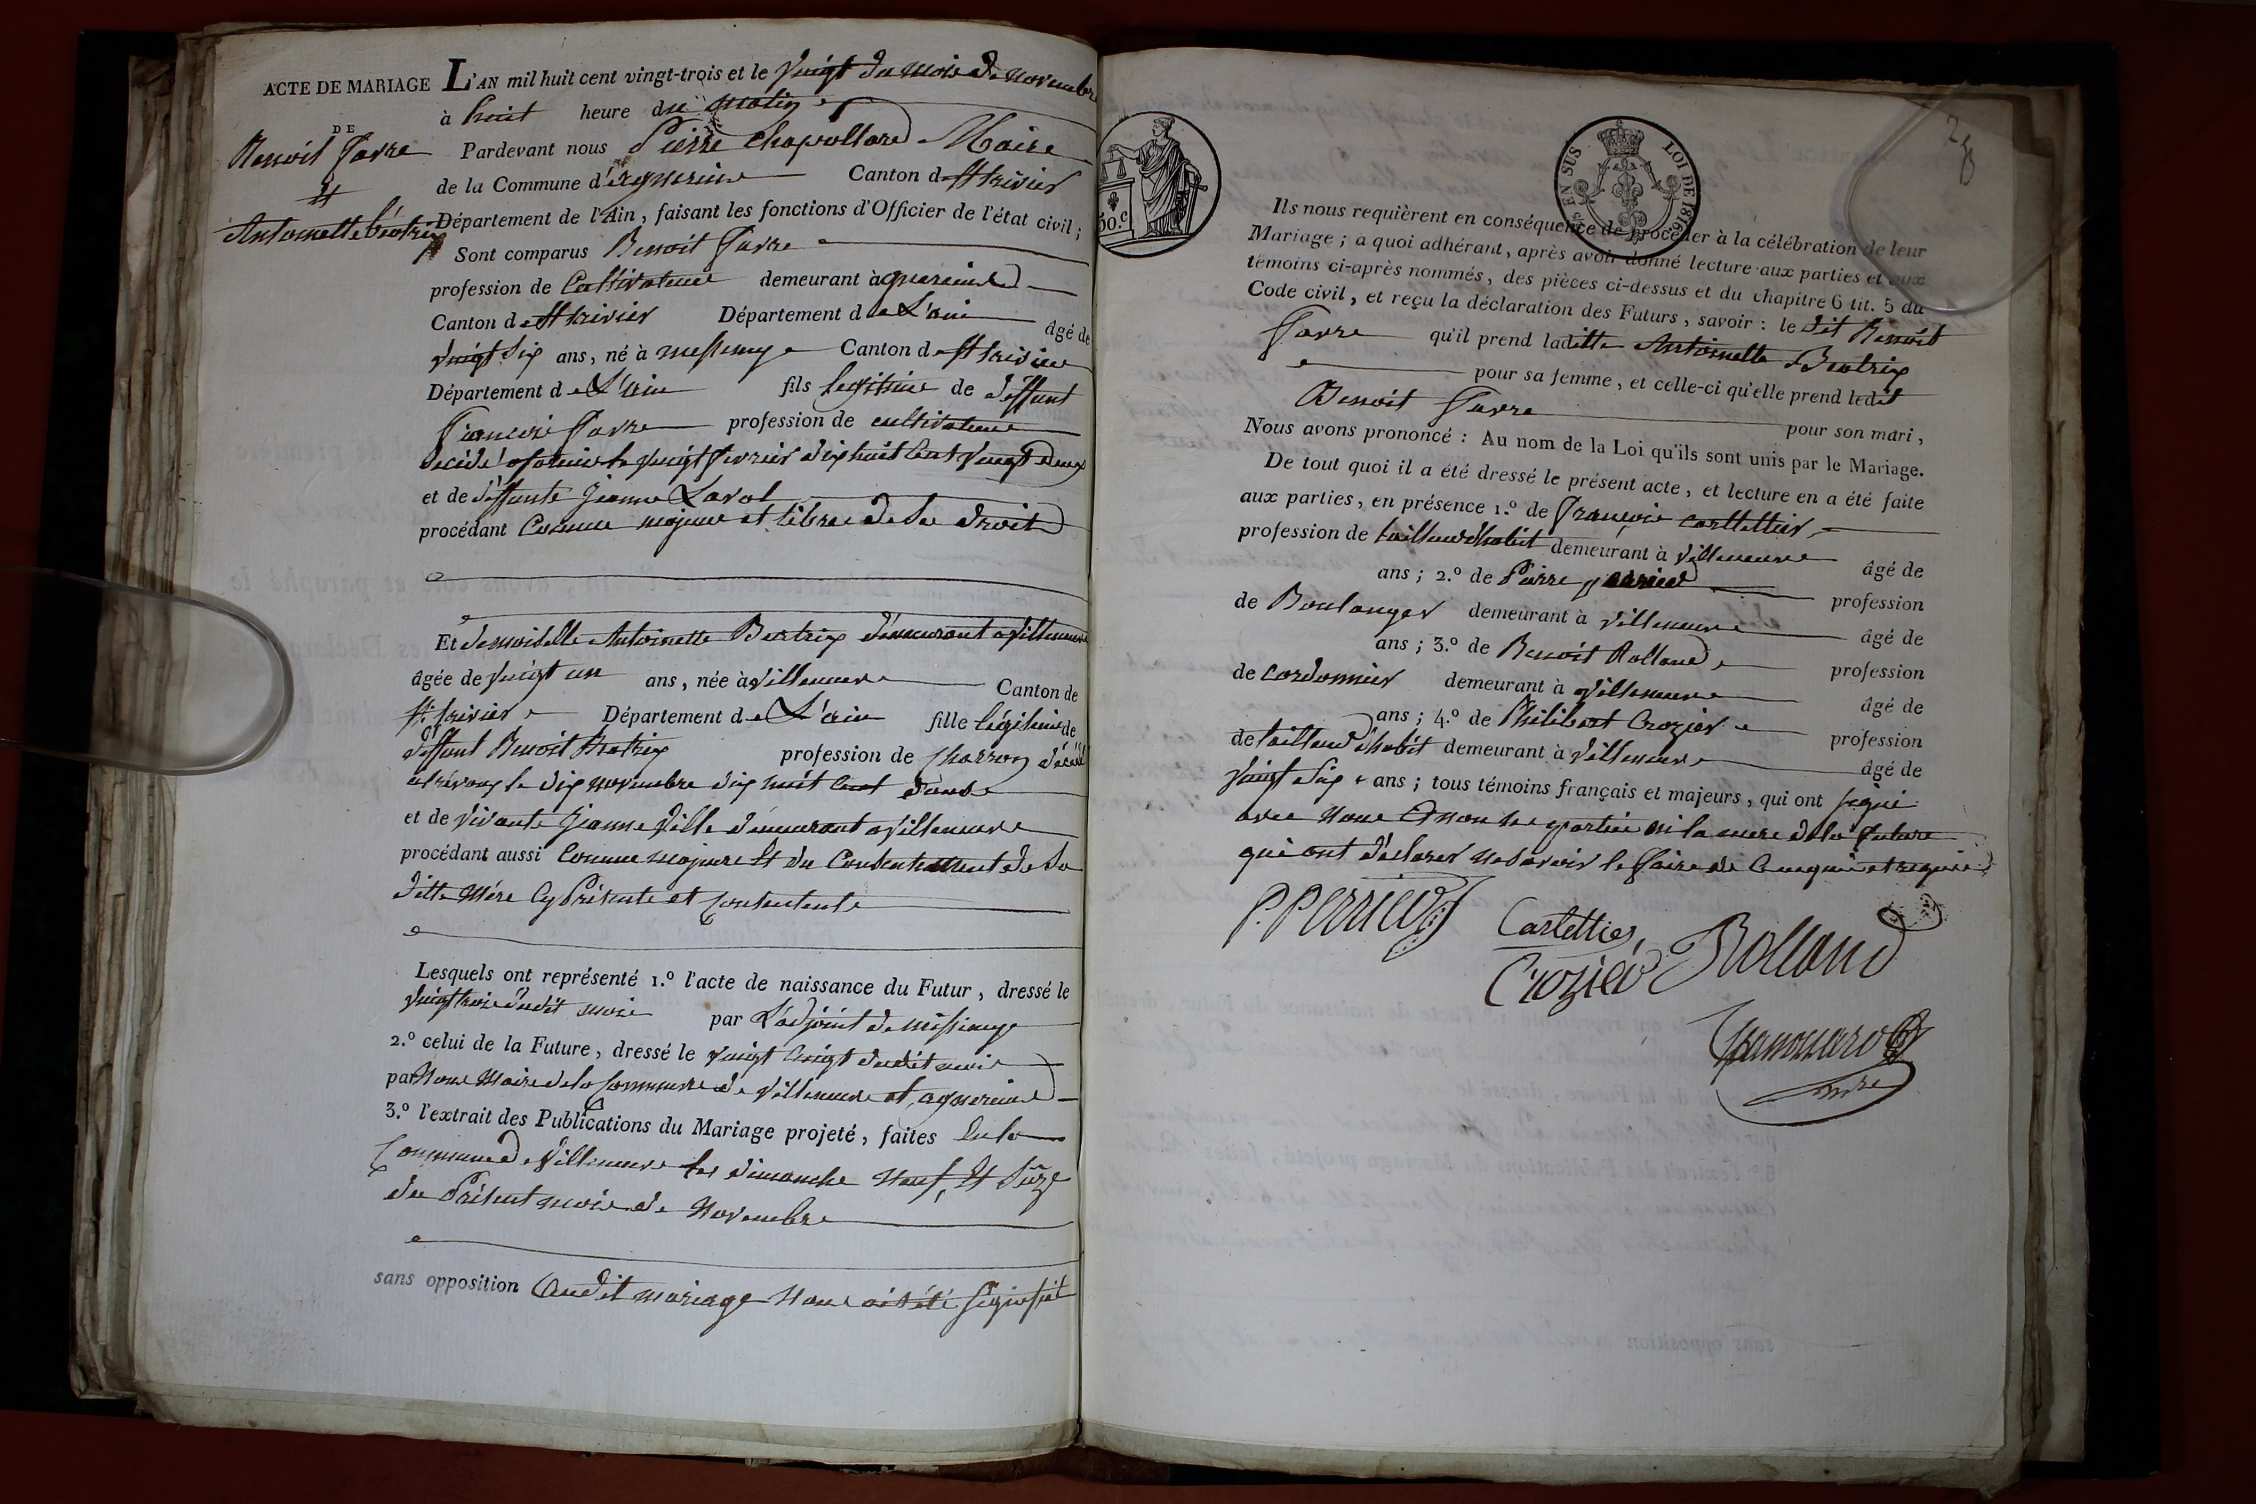 ACTE DE MARIAGE
DE
Benoit Favre
et
Antoinette béatrix
L'AN mil huit cent vingt-trois et le vingt du mois de novembre
à huit heure du matin
Pardevant nous Pierre Maire
de la Commune d'agnereins Canton de St trivier
Département de l'Ain, faisant les fonctions d'Officier de l'état civil;
Sont comparus Benoit Favre
profession de Cultivateur demeurant à agnereins
Canton de St trivier Département de L'ain âgé de
vingt six ans, né à messimy Canton de St trivier
Département de L'ain fils legitime de deffunt
François Favre profession de cultivateur
décédé le vingt fevrier dix huit Cent vingt deux
et de deffunte Jeanne Laval
procédant Comme majeur et libre de Se droits
Et demoiselle Antoinette Beatrix demeurant a villeneuve
âgée de vingt un ans, née à villeneuve Canton de
St. trivier Département de L'ain fille légitime de
deffunt Benoit Beatrix profession de charron décédé
a trévoux le dix novembre dix huit Cent douze
et de vivante Jeanne ville demeurant a villeneuve
procédant aussi Comme majeure Et du Consentement de Sa
ditte Mére Cy Présente et Consentente
Lesquels ont représenté 1.º l'acte de naissance du Futur, dressé le
vingt trois dudit mois par L'adjoint de messimy
2.º celui de la Future, dressé le vingt dudit mois
par Nous Maire de la Commune de villeneuve et agnereins
3.º l'extrait des Publications du Mariage projeté, faites En la
Commune de villeneuve les dimanche neuf, Et Sèze
du Présent mois de Novembre
sans opposition audit mariage Nous été Signifié
50.c
EN SUS
LOI DE 1816
Ils nous requièrent en conséquence de procéder à la célébration de leur
Mariage; à quoi adhérant, après avoir donné lecture aux parties et aux
témoins ci-après nommés, des pièces ci-dessus et du chapitre 6 tit. 5 du
Code civil, et reçu la déclaration des Futurs, savoir: le dit Benoit
Favre qu'il prend laditte Antoinette Beatrix
pour sa femme, et celle-ci qu'elle prend ledit
Benoit Favre pour son mari,
Nous avons prononcé: Au nom de la Loi qu'ils sont unis par le Mariage.
De tout quoi il a été dressé le présent acte, et lecture en a été faite
aux parties, en présence 1.º de François Cartellier
profession de tailleur d'habit demeurant à villeneuve âgé de
ans; 2.º de Pierre perrier profession
de Boulanger demeurant à villeneuve âgé de
ans; 3.º de Benoit Rolland profession
de cordonnier demeurant à villeneuve âgé de
ans; 4.º de Philibert Crozier profession
de tailleur d'habit demeurant à villeneuve âgé de
vingt Six ans; tous témoins français et majeurs, qui ont signé
avec Nous Et non les parties ni la mere de la future
qui ont déclarer ne Savoir le faire de Ce enquis et requis
P. Perrier
Cartellier
Crozier
Rolland